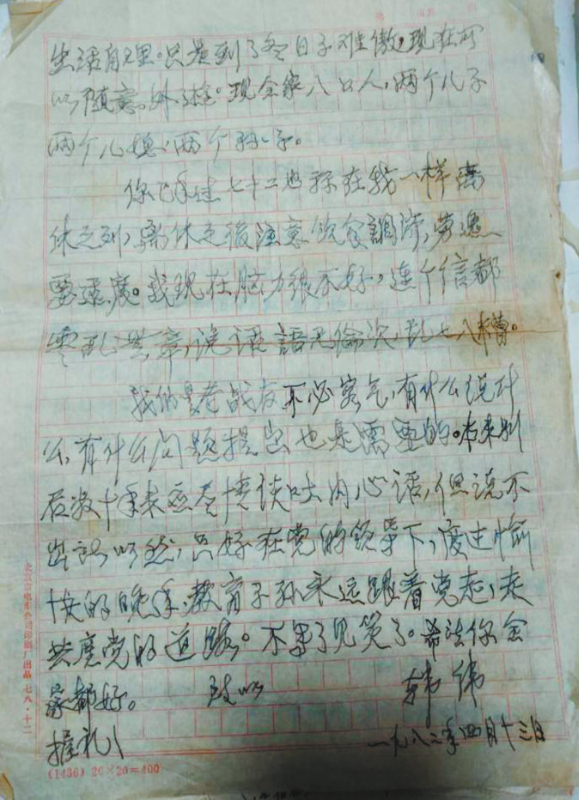 生活自理。只是到了冬日子难傲，现在可
以随意外走。现全家八口人，两个儿子
两个儿媳、两个孙子。
你已年过七十二也称在我一样离
休之列，离休之後注意饮食調滞，劳逸
要适度。我现在脑力很不好。连个信都
零乱無章，说话語无倫次，乱七八槽。
我们是老战友不必客气，有什么说什
么，有什么问题提出也是需要的。本来别
后数十年来应尽情谈吐内心话，但说不
出所以然，只好在党的领导下，度过愉
快的晚年，教育子孙永远跟着党走，走
共产党的道路。不写了见笑了。希法你全
家都好。 致以 韩伟
握礼！ 一九八二年四月十三日
北京市電車公司印刷厂出品 七八·十二
(1436) 20×20=400